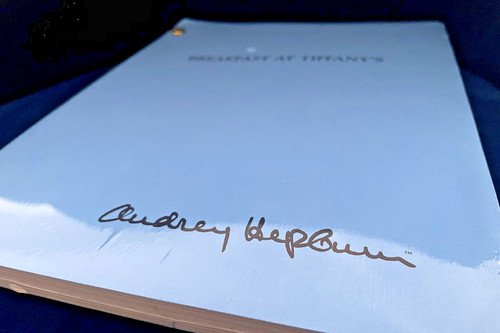 BREAKFAST AT TIFFANY'S
Audrey Hepburn™